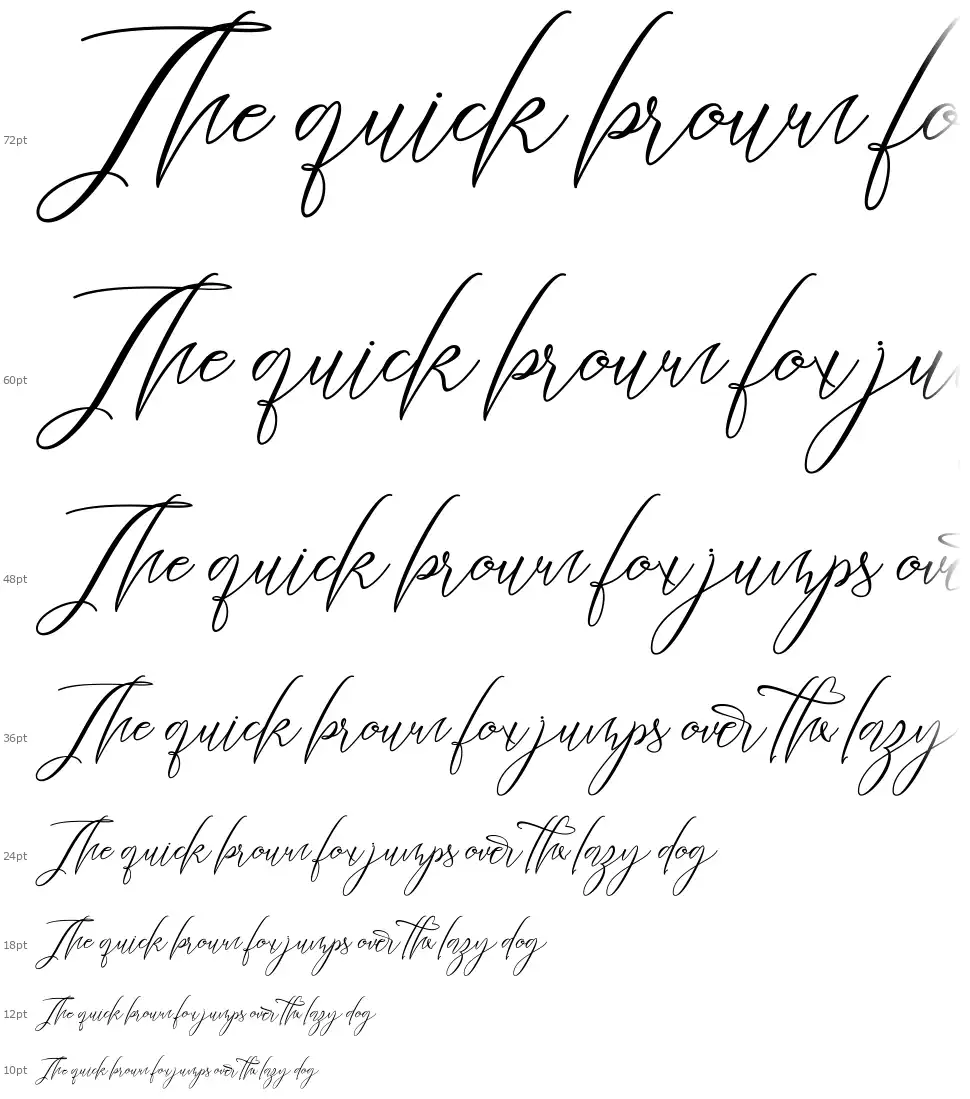 72pt The quick brown fo
60pt The quick brown fox ju
48pt The quick brown fox jumps ov
36pt The quick brown fox jumps over the lazy
24pt The quick brown fox jumps over the lazy dog
18pt The quick brown fox jumps over the lazy dog
12pt The quick brown fox jumps over the lazy dog
10pt The quick brown fox jumps over the lazy dog